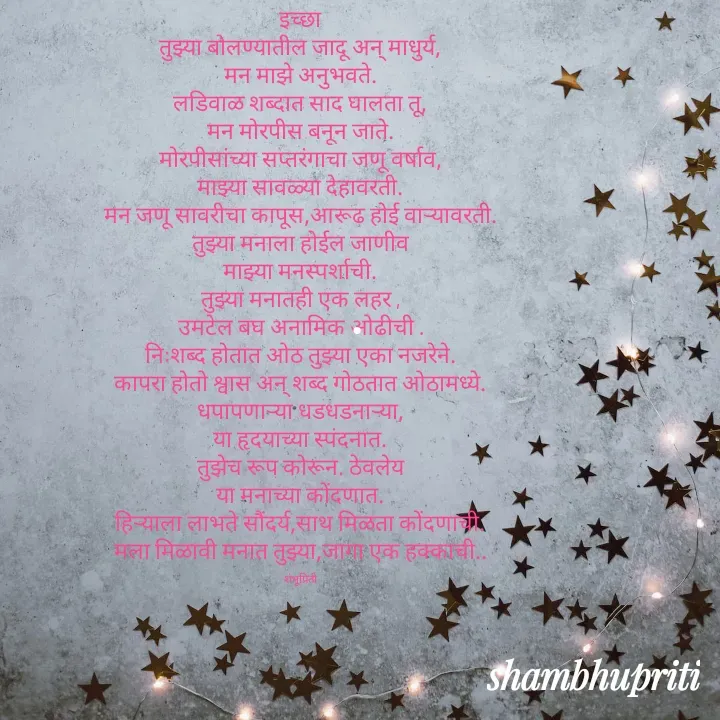 इच्छा
तुझ्या बोलण्यातील जादू अन् माधुर्य,
मन माझे अनुभवते.
लडिवाळ शब्दात साद घालता तू,
मन मोरपीस बनून जाते.
मोरपीसांच्या सप्तरंगाचा जणू वर्षाव,
माझ्या सावळ्या देहावरती.
मन जणू सावरीचा कापूस,आरूढ होई वाऱ्यावरती.
तुझ्या मनाला होईल जाणीव
माझ्या मनस्पर्शाची.
तुझ्या मनातही एक लहर ,
उमटेल बघ अनामिक ओढीची .
नि:शब्द होतात ओठ तुझ्या एका नजरेने.
कापरा होतो श्वास अन् शब्द गोठतात ओठामध्ये.
धपापणाऱ्या धडधडनाऱ्या,
या हृदयाच्या स्पंदनात.
तुझेच रूप कोरून. ठेवलेय
या मनाच्या कोंदणात.
हिऱ्याला लाभते सौंदर्य,साथ मिळता कोंदणाची
मला मिळावी मनात तुझ्या,जागा एक हक्काची..
shambhupriti